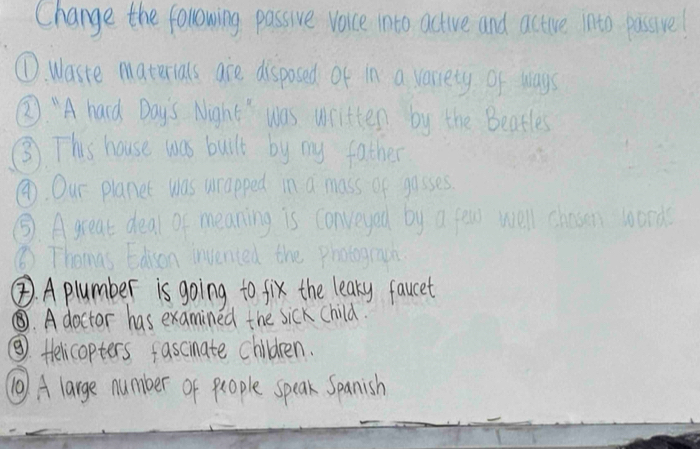 Change the following passive voice into active and active into passive!
① Waste materials are disposed of in a variety of ways
② "A hard Day's Night" was written by the Beatles
③ This house was built by my father
④ Our planet was wrapped in a mass of gasses.
⑤ A great deal of meaning is conveyed by a few well chosen words
⑥ Thomas Edison invented the photograph.
⑦. A plumber is going to fix the leaky faucet
⑧. A doctor has examined the sick child.
⑨ Helicopters fascinate children.
⑩ A large number of people speak Spanish